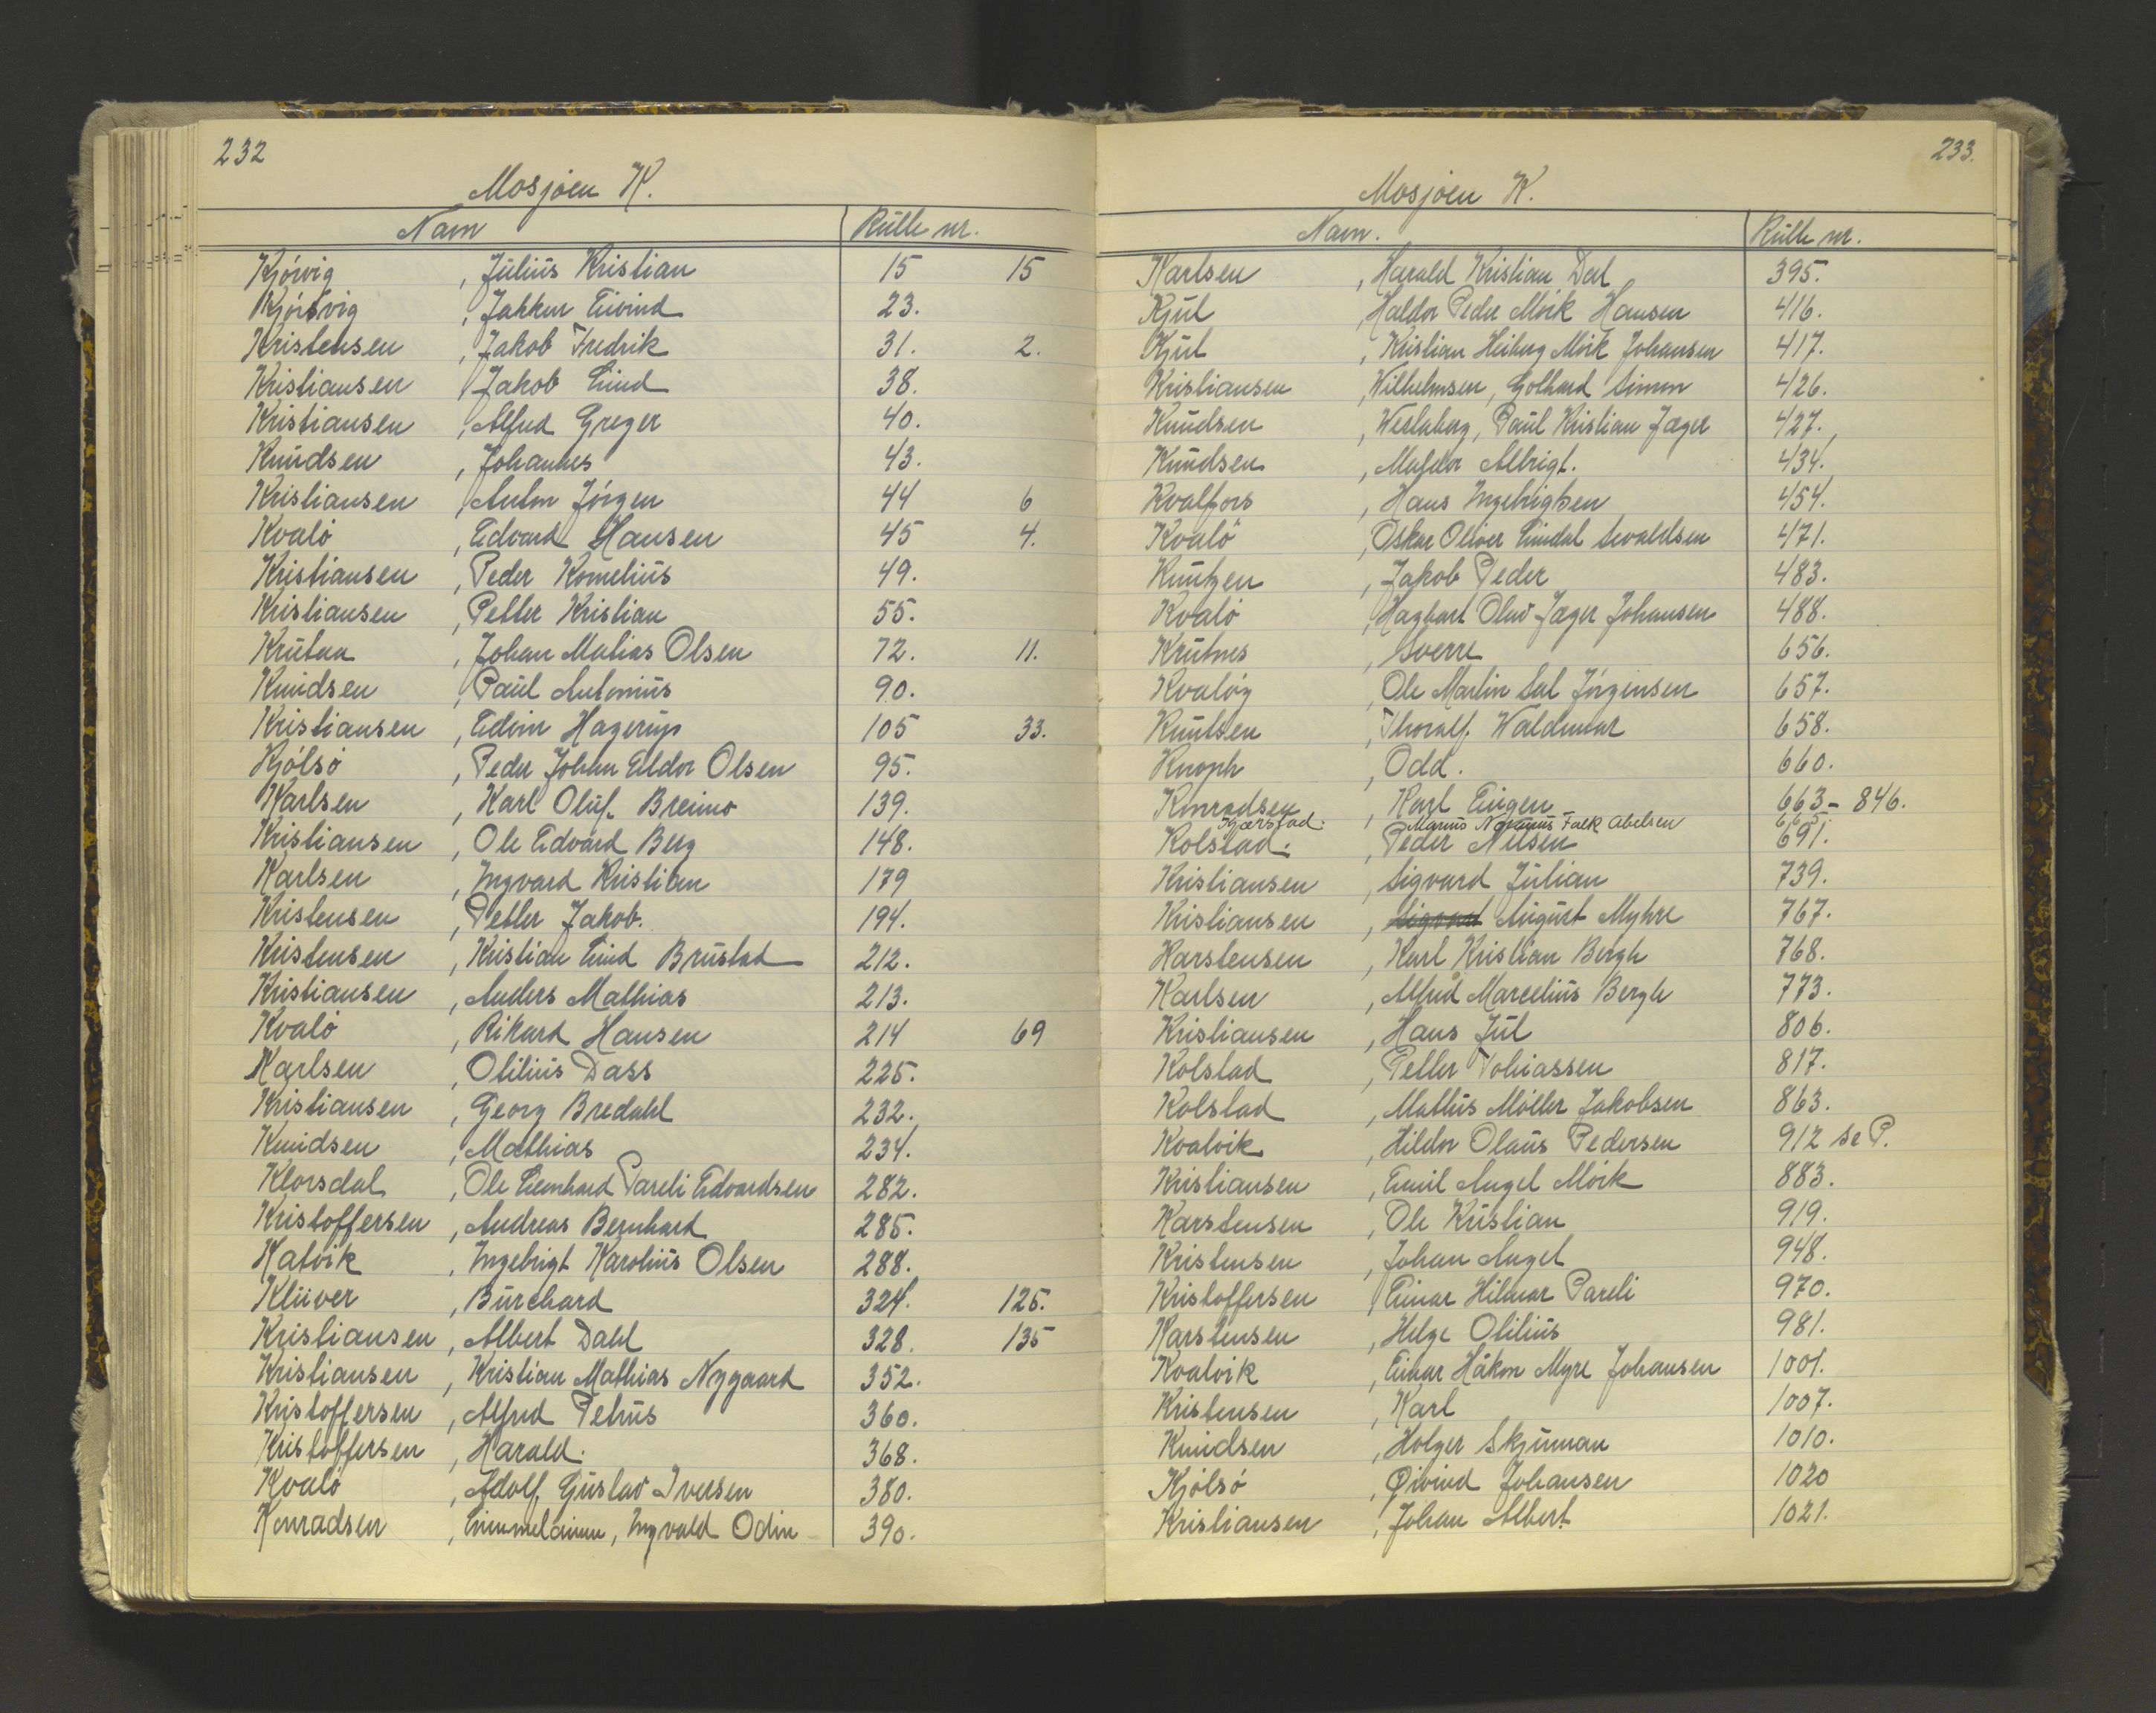 232
Mosjøen K.
Navn Rulle nr.
Kjörvig, Julius Kristian 15 15
Kjörsvig, Eivind 23.
Kristensen, Jakob Fredrik 31. 2.
Kristiansen, Jakob Lind 38.
Kristiansen, Alfred Greger 40.
Knudsen, Johannes 43.
Kristiansen, Anton Jörgen 44 6
Kvalö, Edvard Hansen 45 4.
Kristiansen, Peder Kornelius 49.
Kristiansen, Petter Kristian 55.
Krutaa, Johan Matias Olsen 72. 11.
Knudsen, Paul Antonius 90.
Kristiansen, Edvin Hagerup 105 33.
Kjölsö, Peder Johan Eldor Olsen 95.
Karlsen, Karl Oluf. Breimo 139.
Kristiansen, Ole Edvard Berg 148.
Karlsen, Ingvard Kristian 179
Kristensen, Petter Jakob. 194.
Kristensen, Kristian Lind Brustad 212.
Kristiansen, Anders Mathias 213.
Kvalö, Rikard Hansen 214 69
Karlsen, Otilius Dass 225.
Kristiansen, Georg Bredahl 232.
Knudsen, Mathias 234.
Klovsdal, Ole Leonhard Pareli Edvardsen 282.
Kristoffersen, Andreas Bernhard 285.
Katvik, Ingebrigt Karolius Olsen 288.
Klüver, Burchard 324. 125.
Kristiansen, Albert Dahl 328. 135
Kristiansen, Kristian Mathias Nygaard 352.
Kristoffersen, Alfred Petrus 360.
Kristoffersen, Harald. 368.
Kvalö, Adolf Gustav Iversen 380.
Konradsen, Ingvald Odin 390.
233.
Mosjøen K.
Navn. Rulle nr.
Karlsen, Harald Kristian Dal 395.
Kjul, Haldor Peder Mörk Hansen 416.
Kjul, Kristian Heiberg Mörk Johansen 417.
Kristiansen, Wilhelmsen, Gothard Simon 426.
Knudsen, Westerberg, Paul Kristian Jæger 427.
Knudsen, Albrigt. 434.
Kvalfors, Hans Ingebrigtsen 454.
Kvalö, Oskar Oliver Lindal Sevaldsen 471.
Knutzen, Jakob Peder 483.
Kvalö, Hagbart Olav Jæger Johansen 488.
Krutnes, Sverre 656.
Kvalöy, Ole Martin Sal Jörgensen 657.
Knutsen, Thoralf. Waldemar 658.
Knoph, Odd. 660.
Konradsen, Karl Eugen 663 - 846.
Kjærstad. Marius Falk Abelsen 665.
Kolstad., Peder Nilsen 691.
Kristiansen, Sigvard Julian 739.
Kristiansen, Sigvard August Myhre 767.
Karstensen, Karl Kristian Bergh 768.
Karlsen, Alfred Marcelius Bergh 773.
Kristiansen, Hans Jul 806.
Kolstad, Petter Tobiassen 817.
Kolstad, Mathis Möller Jakobsen 863.
Kvalvik, Hildor Olaus Pedersen 912 se P.
Kristiansen, Emil Angel Mörk 883.
Karstensen, Ole Kristian 919.
Kristensen, Johan Angel 948.
Kristoffersen, Einar Hilmar Pareli 970.
Karstensen, Helge Otilius 981.
Kvalvik, Einar Håkon Myre Johansen 1001.
Kristensen, Karl 1007.
Knudsen, Holger Skjinman 1010.
Kjölsö, Øivind Johansen 1020
Kristiansen, Johan Albert 1021.